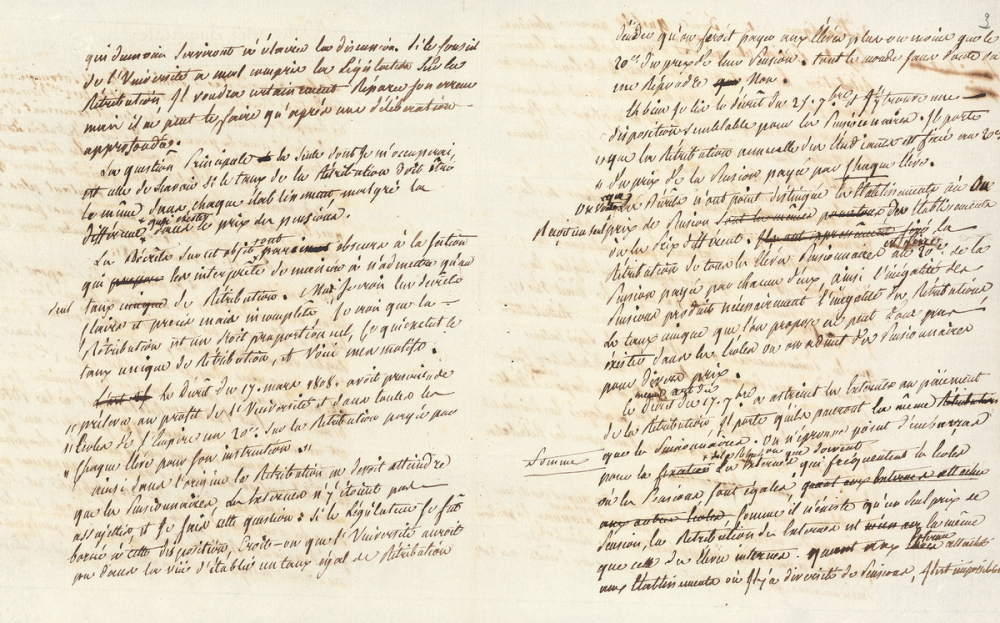 qui demain serviront à éclairer la discussion. Si le Conseil
de l'Université a mal compris la Législation sur la
Rétribution Il voudra certainement Réparer son erreur
mais il ne peut le faire qu'après une délibération
approfondie.
La question Principale la seule dont je m'occuperai
est celle de savoir si le taux de la Rétribution doit être
le même dans chaque établissement, malgré la
différence qui existe dans le prix des pensions.
Les Décrets sur cet objet sont obscurs à la section
qui les interprète de manière à n'admettre qu'un
seul taux de Rétribution. Moi je crois les décrets
clairs et précis mais incomplets. Je crois que la
Rétribution est un droit proportionnel, ce qui exclut le
taux unique de Rétribution, et voici mes motifs.
le décret du 17. mars 1808. avoit prescrit, de
" prélever au profit de l'Université et dans toutes les
" Ecoles de l'Empire un 20e. sur la Rétribution payée par
" chaque élève pour son instruction. "
ainsi dans l'origine la Rétribution ne devoit atteindre
que les Pensionnaires, les Externes n'y étoient pas
assujettis, et je fais cette question : si le Législateur se fut
borné à cette disposition, Croit-on que l'Université auroit
pu dans la vue d'établir un taux égal de Rétribution
3
décider qu'on feroit payer aux élèves plus ou moins que le
20e. du prix de leur Pension. tout le monde sans doute
me Répondra Non.
Eh bien Je lis le décret du 17. 7bre, et j'y trouve une
disposition semblable pour les Pensionnaires. Il porte
" que la Rétribution annuelle des étudians est fixée au 20e.
" du prix de la Pension payée par chaque élève.
Décrets n'ont point distingué les Etablissements où on
prix de Pension des Etablissements
où le prix diffèrent. la
Rétribution de tous les élèves Pensionnaires au 20e. de la
Pension payée par chacun d'eux, ainsi l'inégalité des
Pensions produit nécessairement l'inégalité des Rétributions
Le taux unique que l'on propose ne peut donc pas
exister dans les Ecoles où on admet des Pensionnaires
pour divers prix.
le même décret du 17. 7bre a astreint les Externes au paiement
de la Rétribution, Il porte qu'ils paieront la même
somme que les Pensionnaires. On n'éprouve point d'embarras
pour la fixation des Externes qui fréquentent les écoles
où les Pensions sont égales quant aux Externes attachés
aux autres Ecoles comme il n'existe qu'un seul prix de
Pension, la Rétribution des Externes est la même
que celle des élèves internes. quant aux Externes attachés
aux Etablissements où Il y a diversité de Pensions, Il est impossible